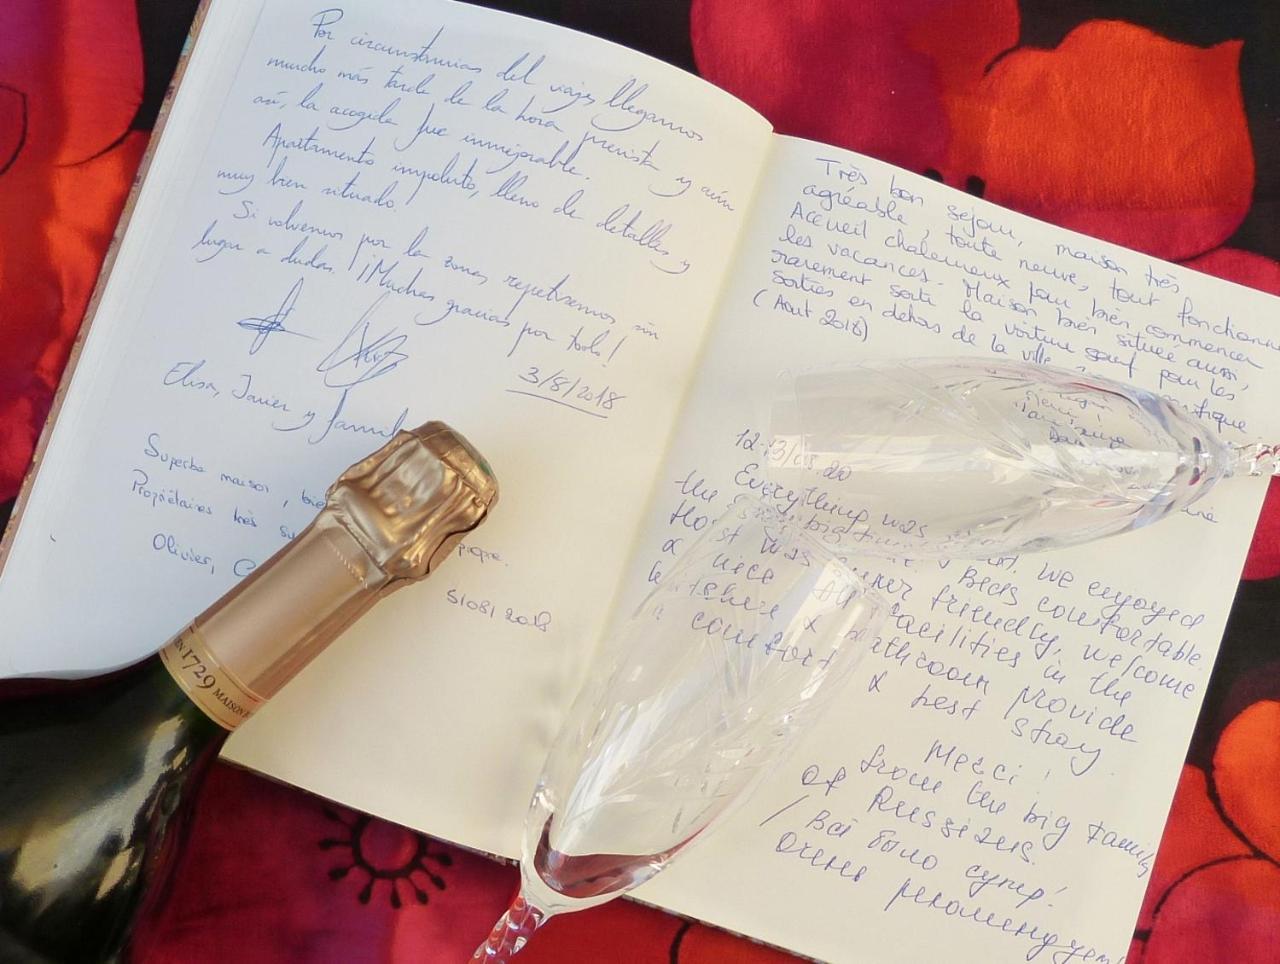 Por circunstancias del viaje llegamos
mucho más tarde de la hora prevista y aún
así, la acogida fue inmejorable.
Apartamento impoluto, lleno de detalles y
muy bien situado!
Si volvemos por la zona, repetiremos sin
lugar a dudas. ¡¡Muchas gracias por todo!
3/8/2018
Elisa, Javier y famil
Superbe maison, bie
Propriétaires très su propre.
Olivier, C
5/08/2018
Très bon séjour, maison très
agréable, toute neuve, tout fonctionne
Accueil chaleureux pour bien commencer
les vacances. Maison bien située aussi,
rarement sorti la voiture sauf pour les
sorties en dehors de la ville
(Aout 2018)
Everything was We enjoyed
the big Beds comfortable.
Host was super friendly, welcome
& nice All facilities in the
kitchen & bathroom provide
comfort & best stay
Merci!
from the big family
of Russizns.
/ Всё было супер!
Очень рекоменду
EN 1729 MAISON